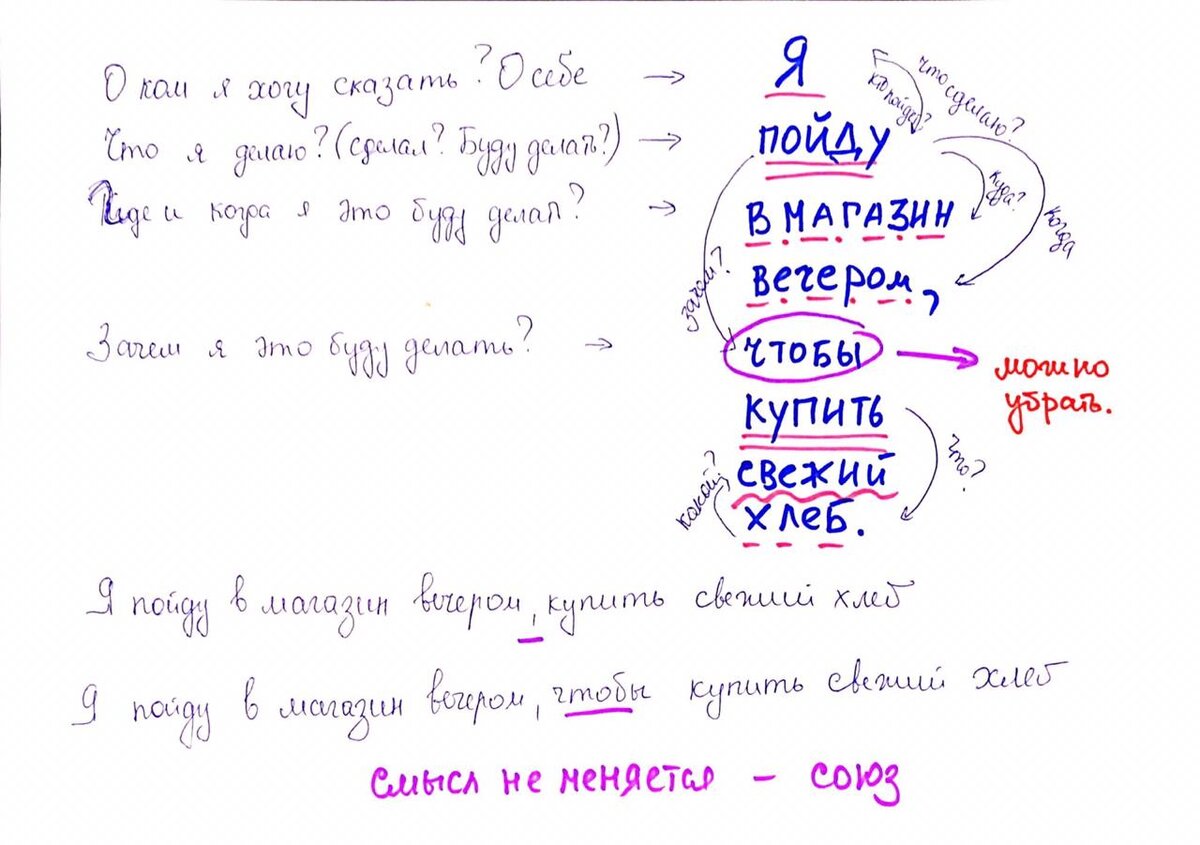 О ком я хочу сказать? О себе → Я
Что я делаю? (сделал? Буду делать?) → пойду
Где и когда я это буду делать? → в магазин
вечером,
Зачем я это буду делать? → чтобы → можно убрать.
купить
свежий
хлеб.
кто пойдет?
что сделаю?
куда?
когда
зачем?
что?
какой?
Я пойду в магазин вечером, купить свежий хлеб
Я пойду в магазин вечером, чтобы купить свежий хлеб
смысл не меняется – союз